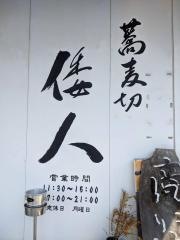 蕎麦切
倭人
営業時間
11:30~15:00
17:00~21:00
定休日 月曜日